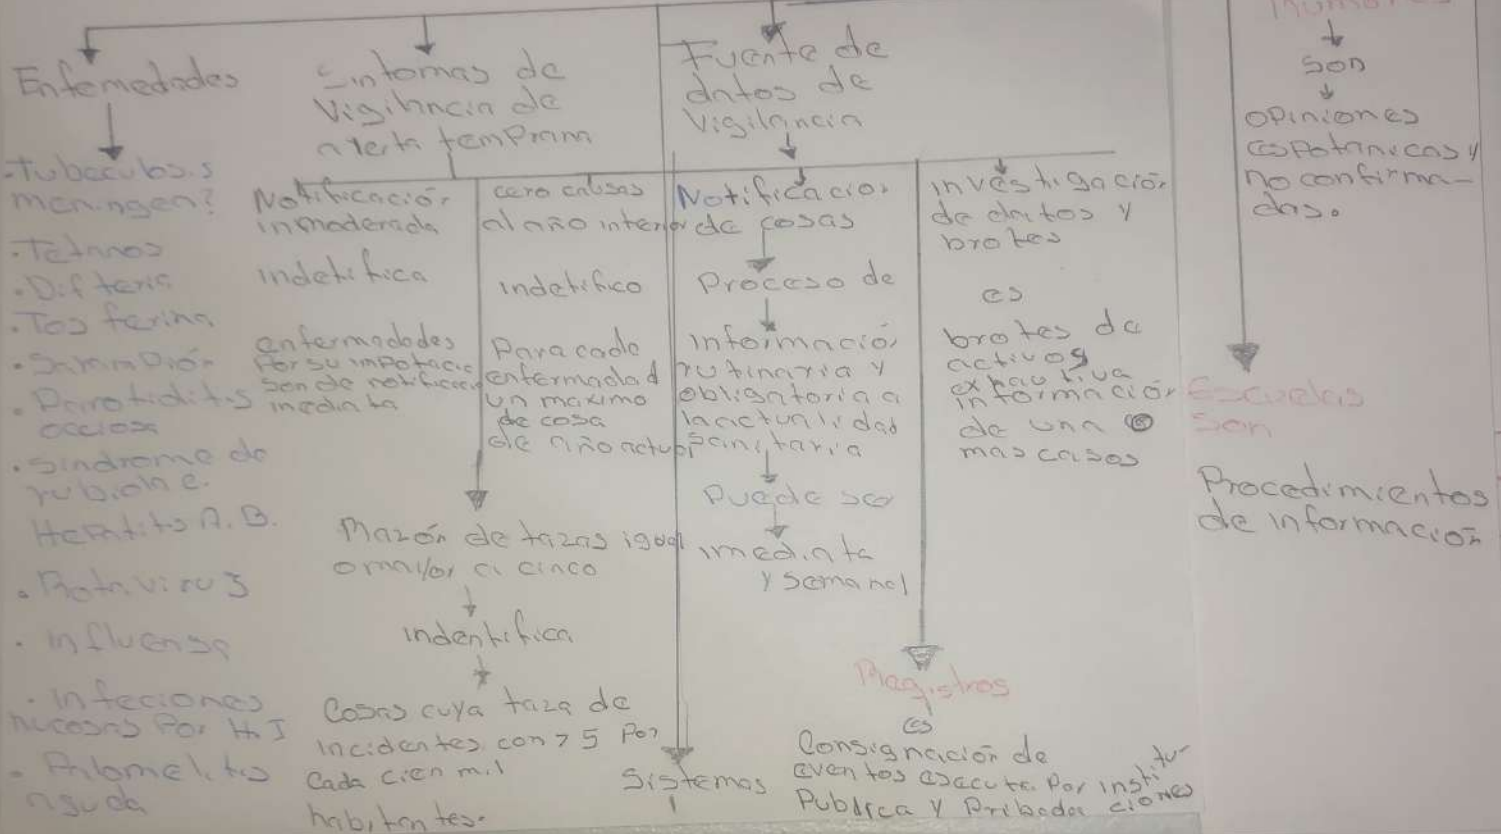 Enfemedades
-Tubaculos.s
meningea?
·Tetanos
·Difteris
·Tos farina
·Sarampión
·Parotiditis
·Sindrome de
rubione.
Hepatitis A. B.
·Rotavirus
·Influensa
·Infeciones
nucosas Por H.I
·Poliomelitis
aguda
Sintomas de
Vigilancia de
alerta temprana
Notificación
inmoderada
indetifica
enfermedades
Por su impotacia
son de notificacio
inediata
cero causas
al año interior
indetifico
Para cada
enfermedad
un maximo
de cosa
de año actual
Razón de tazas igual
o mayor a cinco
indentifica
Cosas cuya taza de
incidentes con > 5 Por
Cada cien mil
habitantes.
Fuente de
datos de
Vigilancia
Notificacion
de cosas
Proceso de
informació
rutinaria y
obligatoria a
la actualidad
sanitaria
Puede ser
imediata
y semanal
Sistemas
investigación
de datos y
brotes
es
brotes de
activos
exhaustiva
información
de una o
mas casos
Registros
es
Consignación de
eventos esecuta Por institu
ciones
Publica y Pribada
Rumores
Son
opiniones
espotanicas y
no confirma-
das.
Escuelas
Son
Procedimientos
de informacion